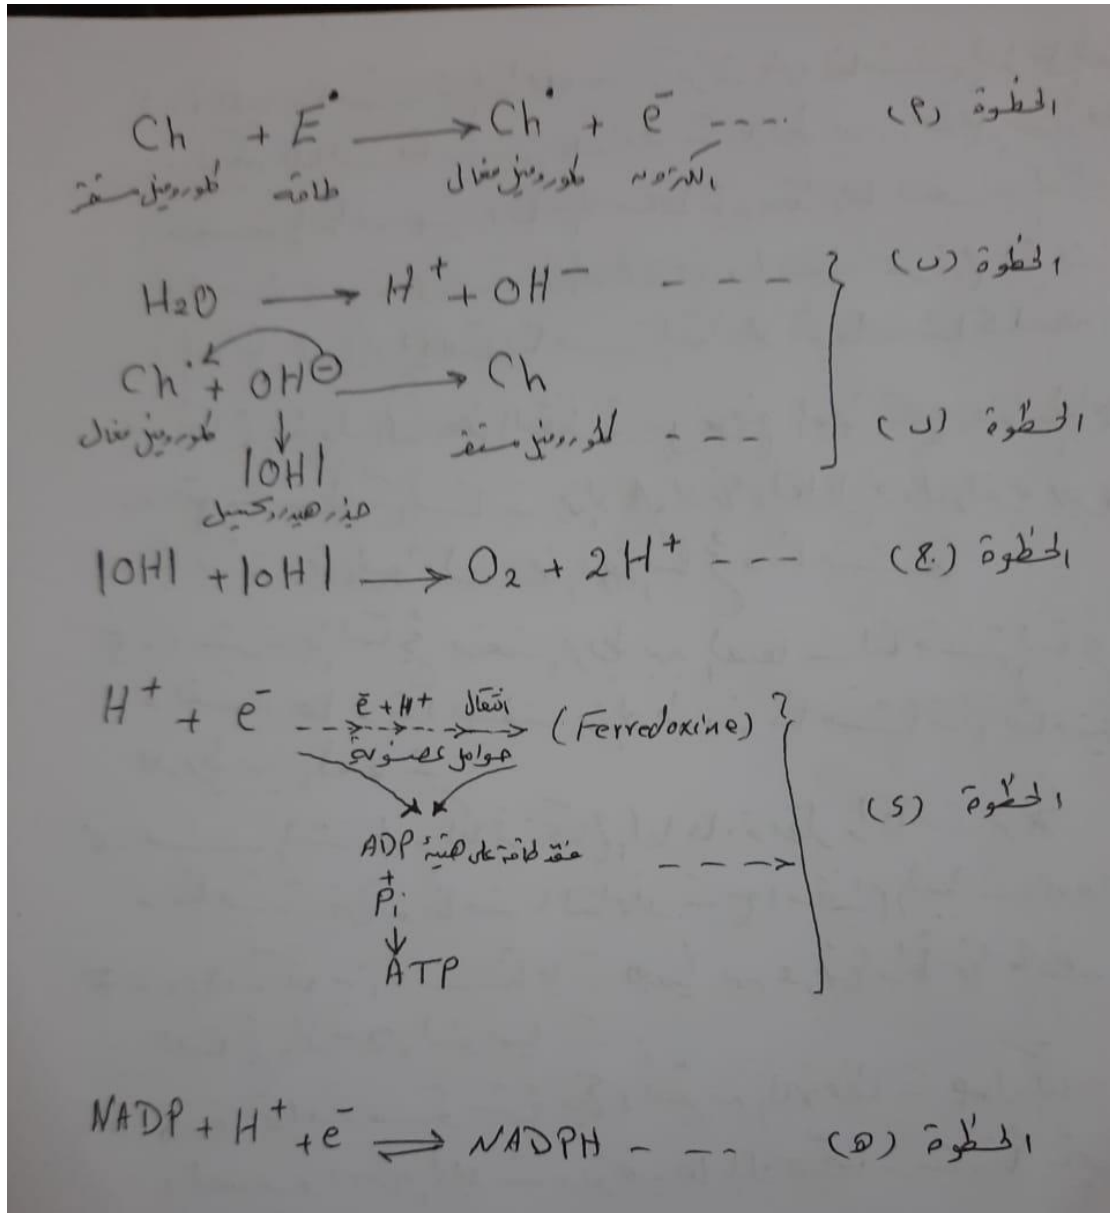 Ch + E• → Ch• + e⁻ ---- الخطوة (أ)
كلوروفيل مستقر طاقة كلوروفيل فعال الكترون
H₂O → H⁺ + OH⁻ - - - الخطوة (ب)
Ch• + OH⊖ → Ch
كلوروفيل فعال ↓ كلوروفيل مستقر - - - الخطوة (ب)
|OH|
جذر هيدروكسيل
|OH| + |OH| → O₂ + 2H⁺ --- الخطوة (ج)
انتقال e⁻ + H⁺
H⁺ + e⁻ → (Ferredoxine)
حوامل عضوية
الخطوة (د)
ADP فقد طاقة على هيئة - - - →
+
Pi
↓
ATP
NADP + H⁺ + e⁻ ⇌ NADPH - -- الخطوة (ه)